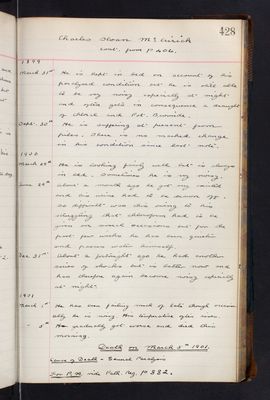 428
Charles Sloan McCusick
cont. from P 404.
1899
March 31st He is kept in bed on account of his
paralysed condition but he is still able
to be very noisy especially at night
and often gets in consequence a draught
of Chloral and Pot. Bromide.
Sept. 30th He is suffering at present from
piles. There is no marked change
in his condition since last note.
1900
March 25th He is looking fairly well but is always
in bed. Sometimes he is very noisy.
June 24th About a month ago he got very
and his urine had to be drawn off.
So difficult was this owing to his
struggling that chloroform had to be
given on several occasions but for the
past few weeks he has been quieter
and passes water himself.
Dec. 31st About a fortnight ago he had another
series of shocks but is better now and
has therefore again become noisy especially
at night.
1901
March 1st He has been failing much of late though occasion-
ally he is noisy. His temperature often rises.
" 5th He gradually got worse and died this
morning.
Death on March 5th 1901.
Cause of Death - General Paralysis
For P.M. vide Path. Reg. P 382.